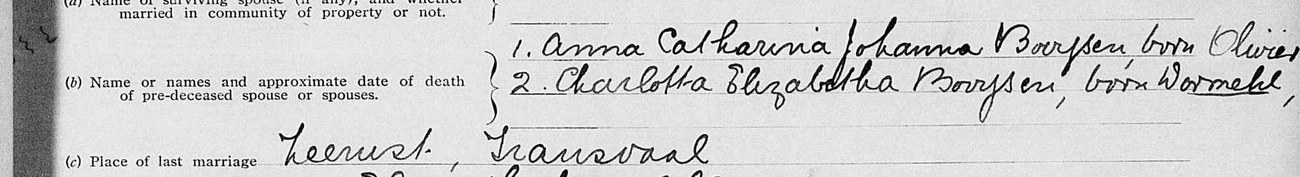 (a) Name of surviving spouse (if any), and whether
married in community of property or not.
1. Anna Catharina Johanna Booysen, born Olivier
(b) Name or names and approximate date of death
of pre-deceased spouse or spouses.
2. Charlotta Elizabetha Booysen, born Wormehl,
(c) Place of last marriage Zeerust, Transvaal